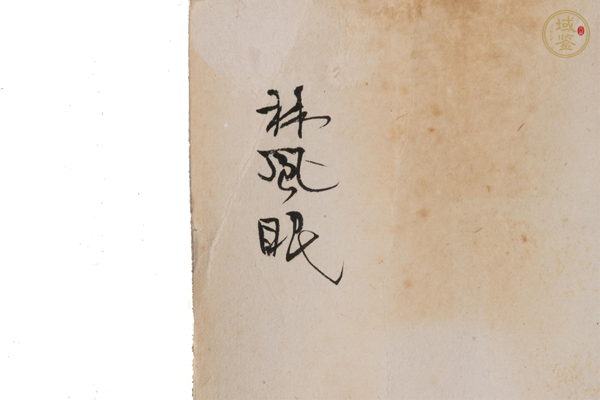 林風眠
域鉴